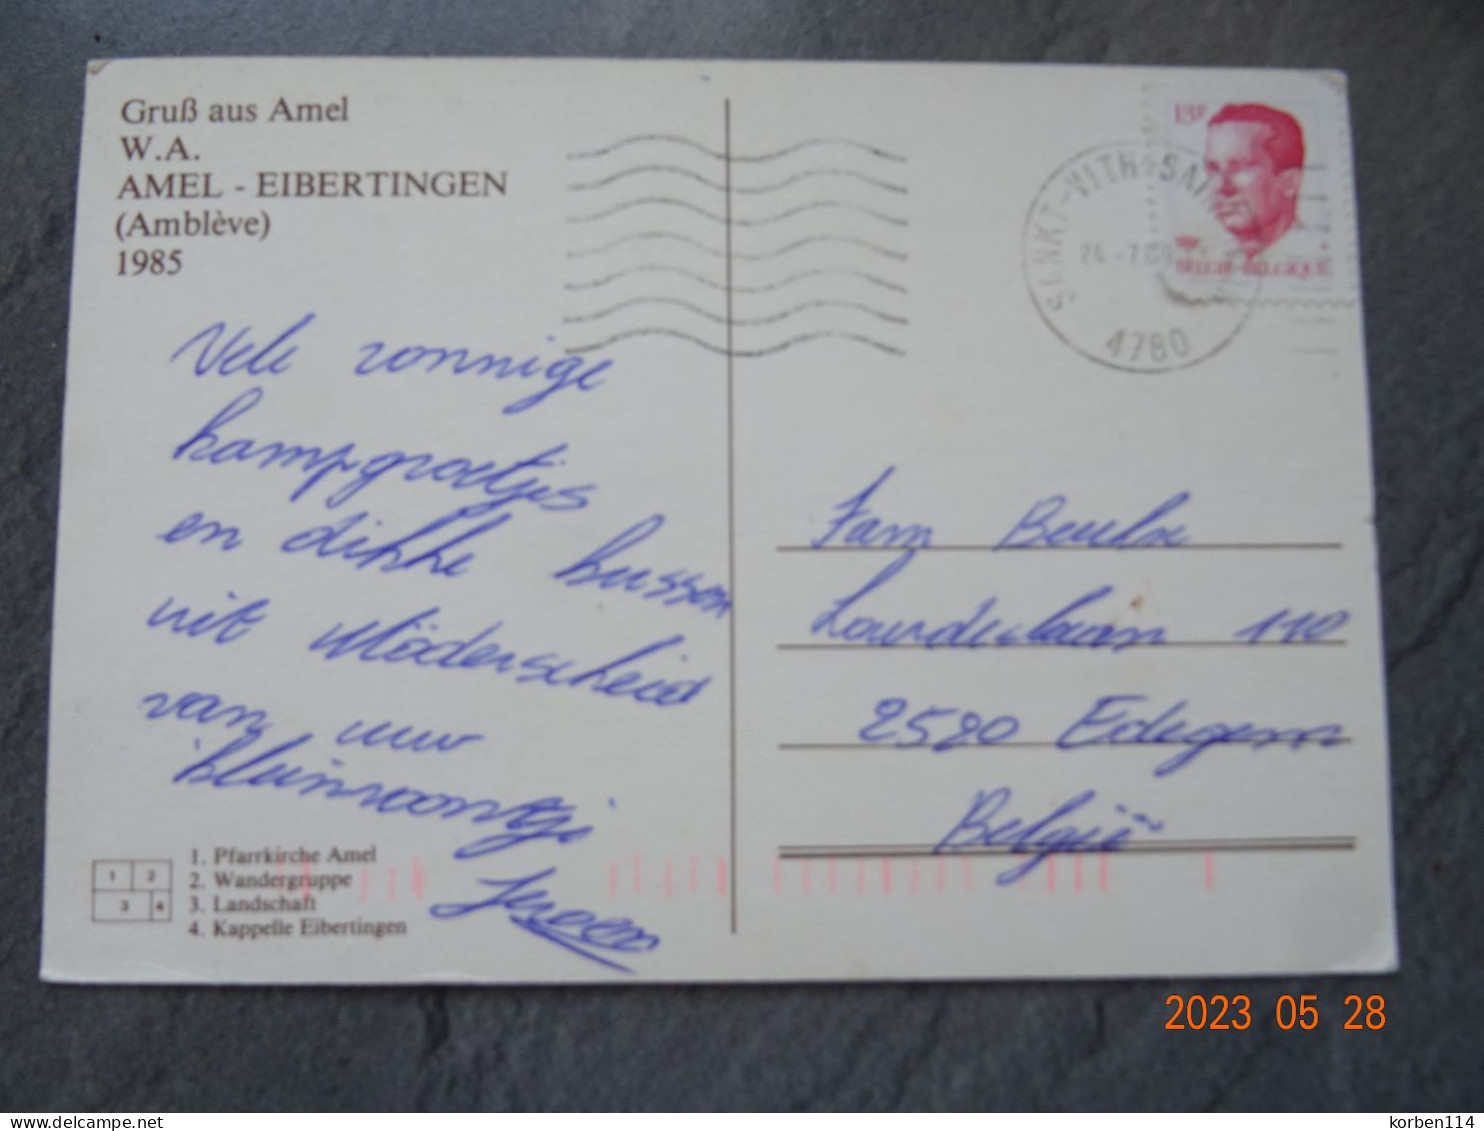 Gruß aus Amel
W.A.
AMEL - EIBERTINGEN
(Amblève)
1985
Vele zonnige
kampgroetjes
en dikke kussen
uit Möderscheid
van uw
kleinzoontje
Jeroen
1. Pfarrkirche Amel
2. Wandergruppe
3. Landschaft
4. Kappelle Eibertingen
1 2
3 4
13F
BELGIË-BELGIQUE
SANKT-VITH
4780
Fam
Lourdeslaan 110
2520 Edegem
België
2023 05 28
korben114